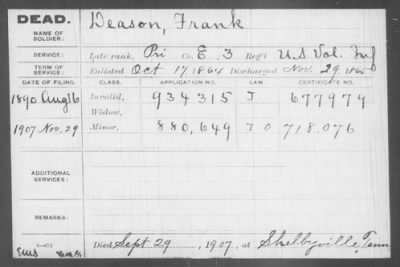 DEAD.
NAME OF SOLDIER: Deason, Frank
SERVICE: Late rank, Pri Co. E. 3 Reg't U.S. Vol. Inf
TERM OF SERVICE: Enlisted Oct 17, 1864 Discharged Nov. 29, 1865
DATE OF FILING. CLASS. APPLICATION NO. LAW CERTIFICATE NO.
1890 Aug 16 Invalid, 934315 J 677979
Widow,
1907 Nov. 29 Minor, 880,649 J 0 718.076
ADDITIONAL SERVICES:
REMARKS:
Died Sept 29, 1907, at Shelbyville, Tenn
Ems